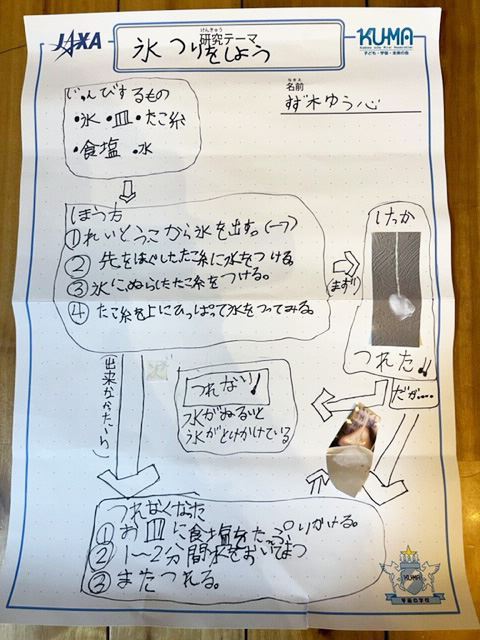 JAXA
研究テーマ
けんきゅう
氷つりをしよう
KUMA
子ども・宇宙・未来の会
名前
なまえ
鈴木ゆう心
じゅんびするもの
・氷 ・皿 ・たこ糸
・食塩 ・水
ほう方
①れいとうこから氷を出す。(一つ)
②先をほぐしたたこ糸に水をつける。
③氷にぬらしたたこ糸をつける。
④たこ糸を上にひっぱって氷をつってみる。
(まずり)
けっか
つれた!!
だが……
(出来なかったら)
つれない!
水がぬるいと
氷がとけかけている
つれなくなった
①お皿に食塩をたっぷりかける。
②1〜2分間水をおいてまつ
③またつれる。
KUMA
宇宙の学校